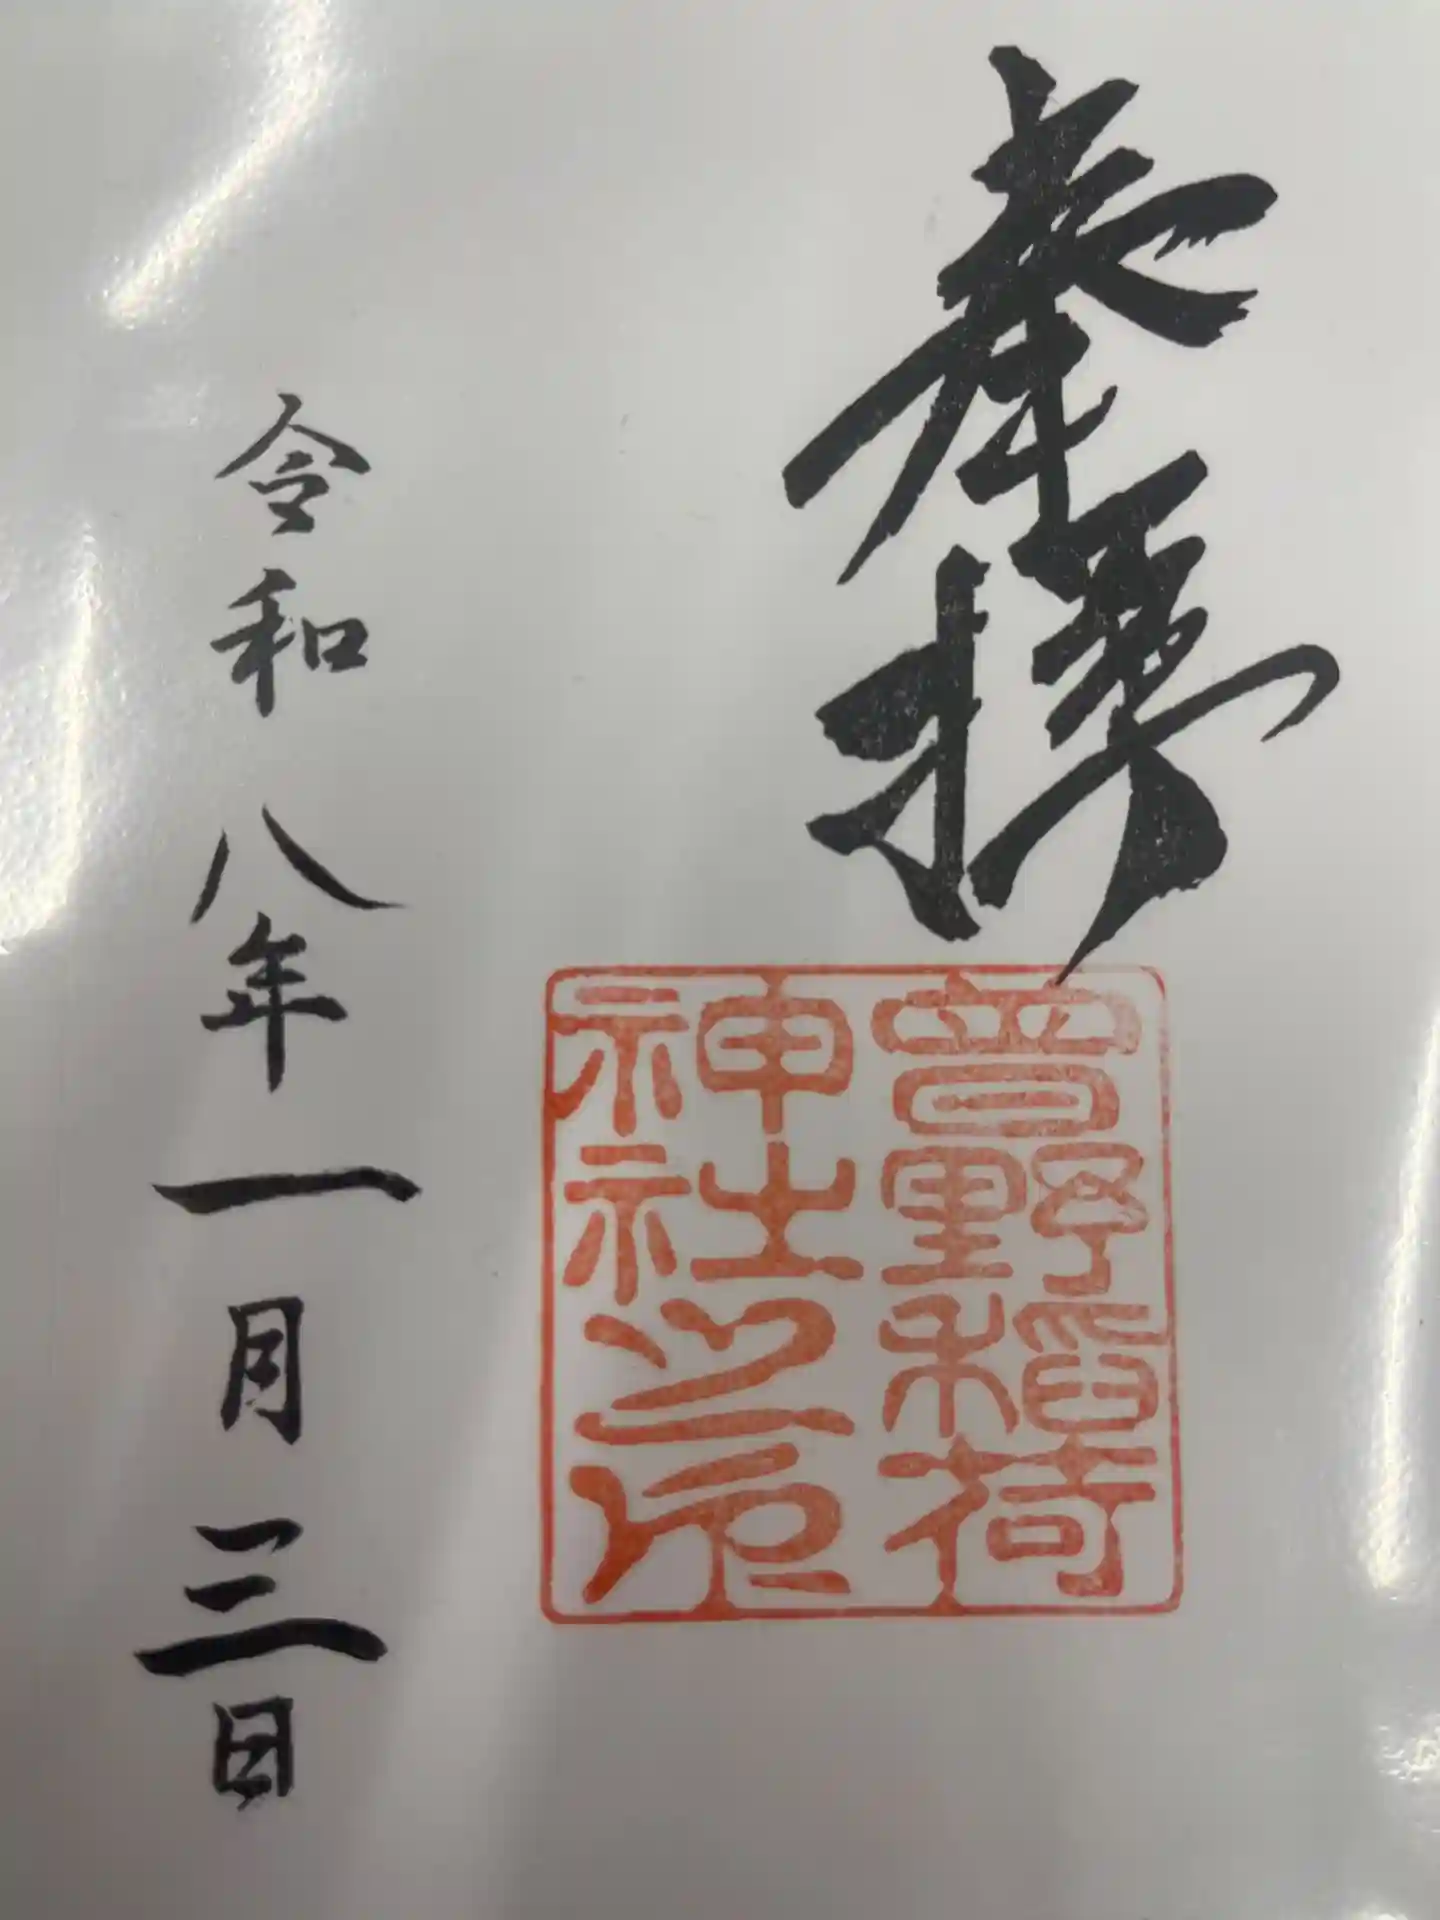 奉拝
曽野稲荷
神社之印
令和八年一月三日